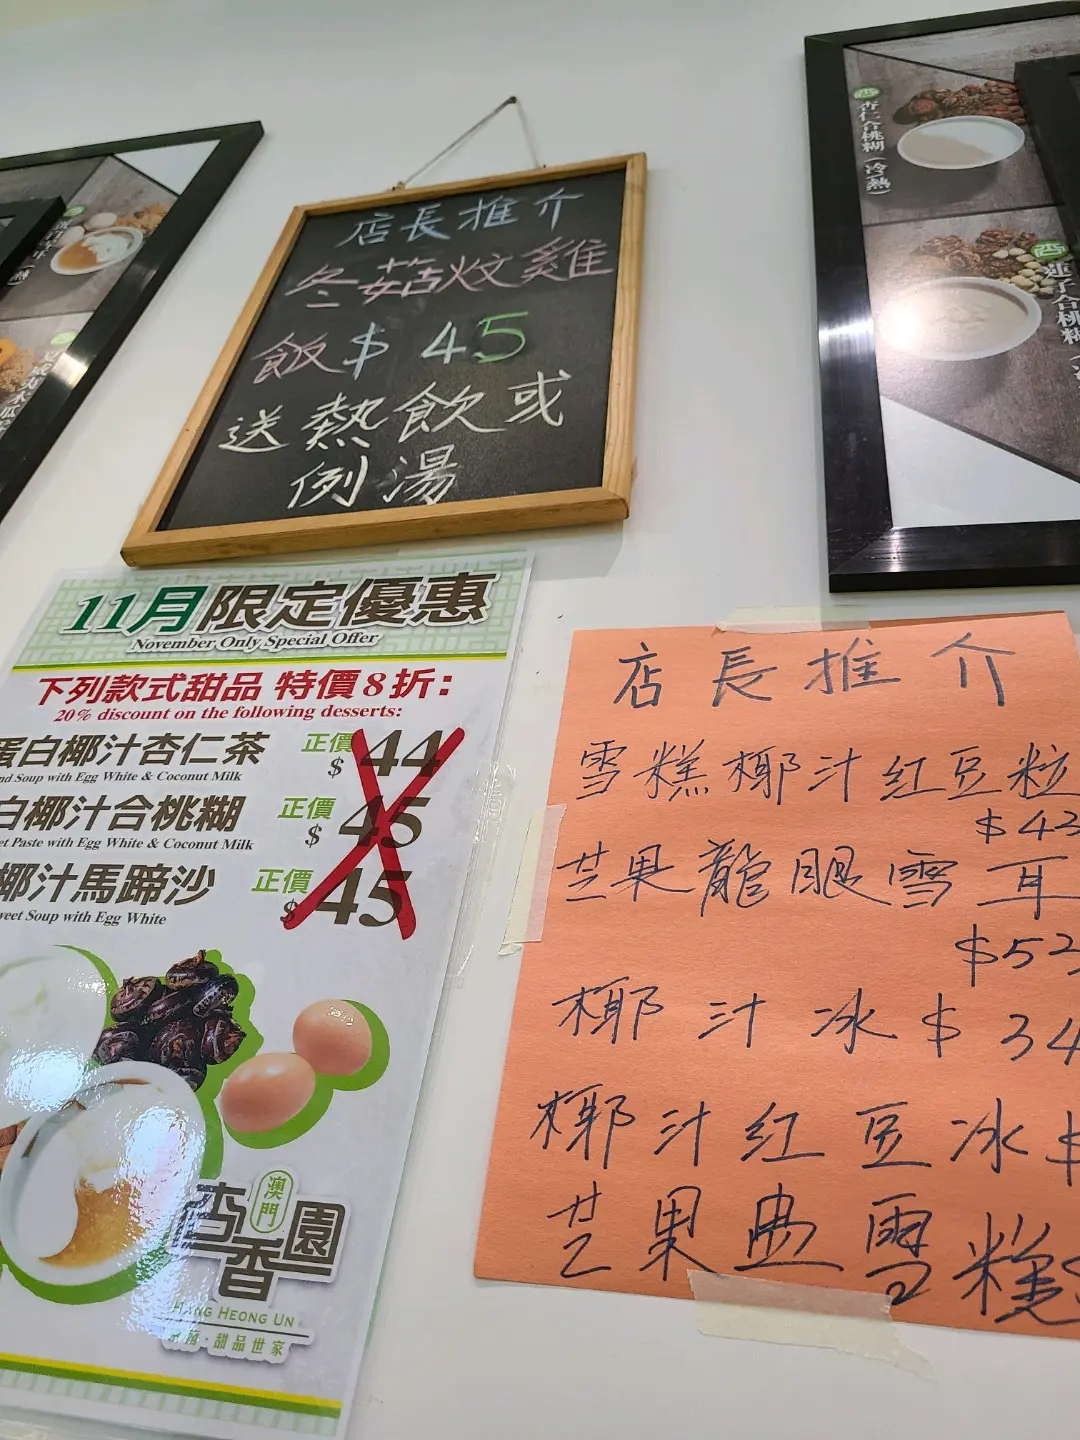 店長推介
冬菇炆雞
飯$45
送熱飲或
例湯
11月限定優惠
November Only Special Offer
下列款式甜品 特價8折：
20% discount on the following desserts:
蛋白椰汁杏仁茶 正價 $44
nd Soup with Egg White & Coconut Milk
白椰汁合桃糊 正價 $45
et Paste with Egg White & Coconut Milk
椰汁馬蹄沙 正價 $45
weet Soup with Egg White
澳門
杏香園
HANG HEONG UN
甜品世家
店長推介
雪糕椰汁紅豆粒
$43
芒果龍眼雪耳
$52
椰汁冰$34
椰汁紅豆冰$
芒果雪糕$
杏仁合桃糊（冷熱）
蓮子合桃糊